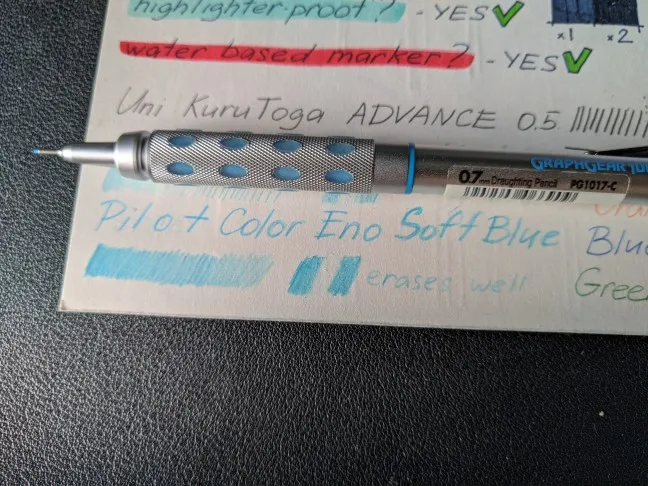 highlighter-proof? - YES
x1 x2
water based marker? - YES
Uni KuruToga ADVANCE 0.5
GRAPHGEAR
0.7mm Draughting Pencil PG1017-C
Pilot Color Eno Soft Blue
Blue
erases well
Green